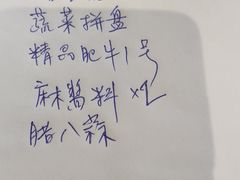 蔬菜拼盘
精品肥牛1号
麻酱料 ×2
腊八蒜